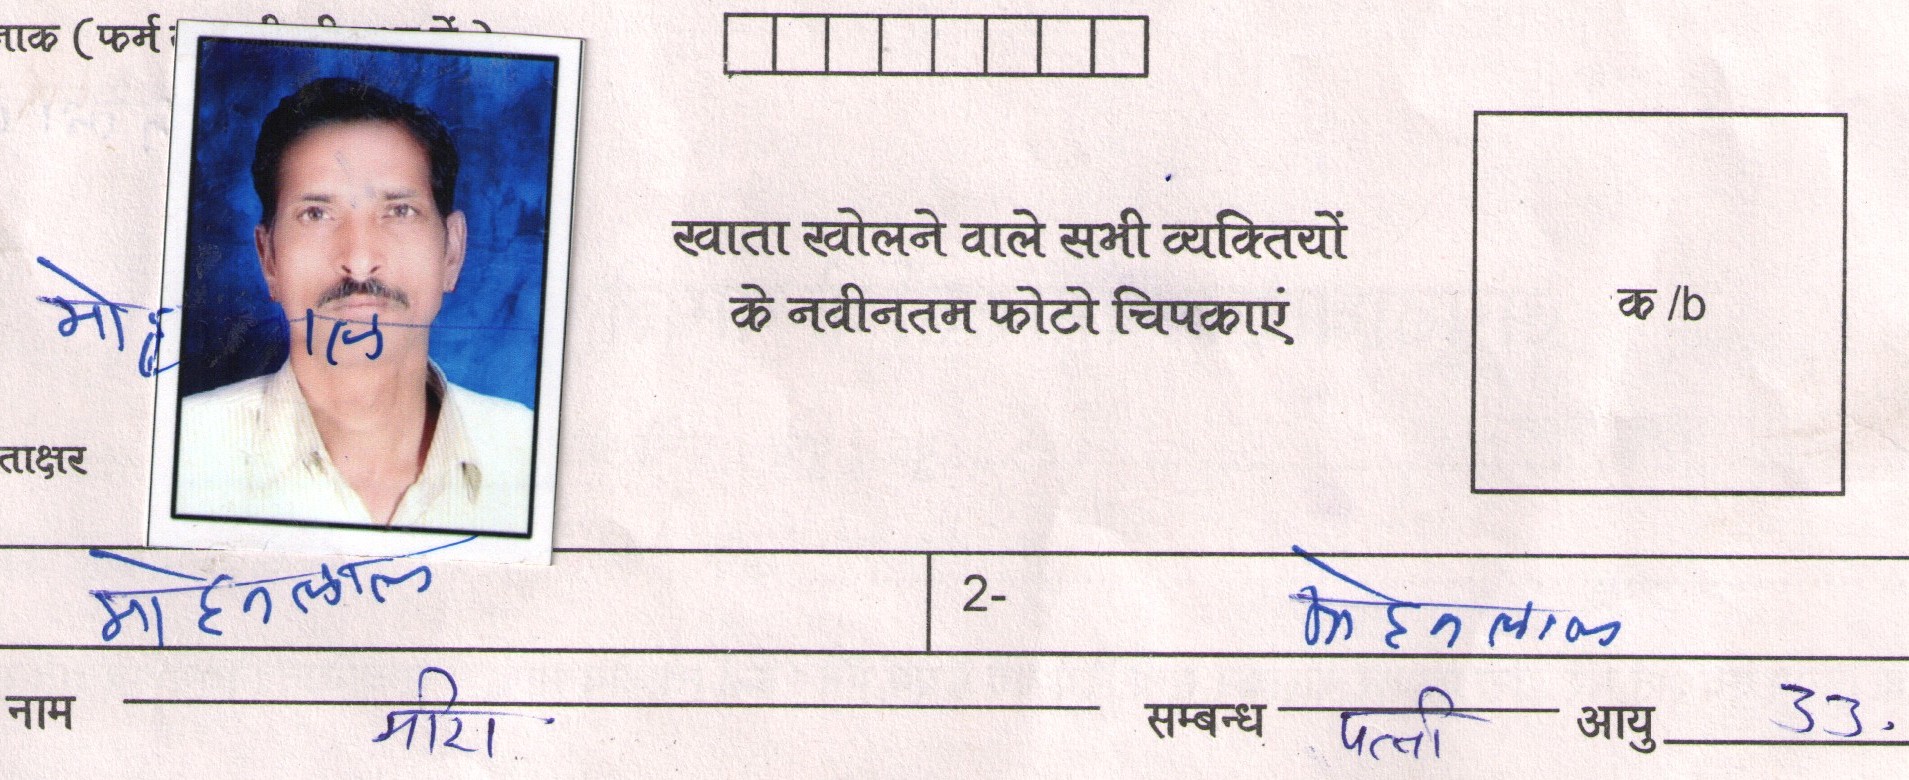 नाक ( फर्म
खाता खोलने वाले सभी व्यक्तियों
के नवीनतम फोटो चिपकाएं
क /b
मोह ाल
ताक्षर
मोहनलाल 2- मोहनलाल
नाम मीरा सम्बन्ध पत्नी आयु 33.